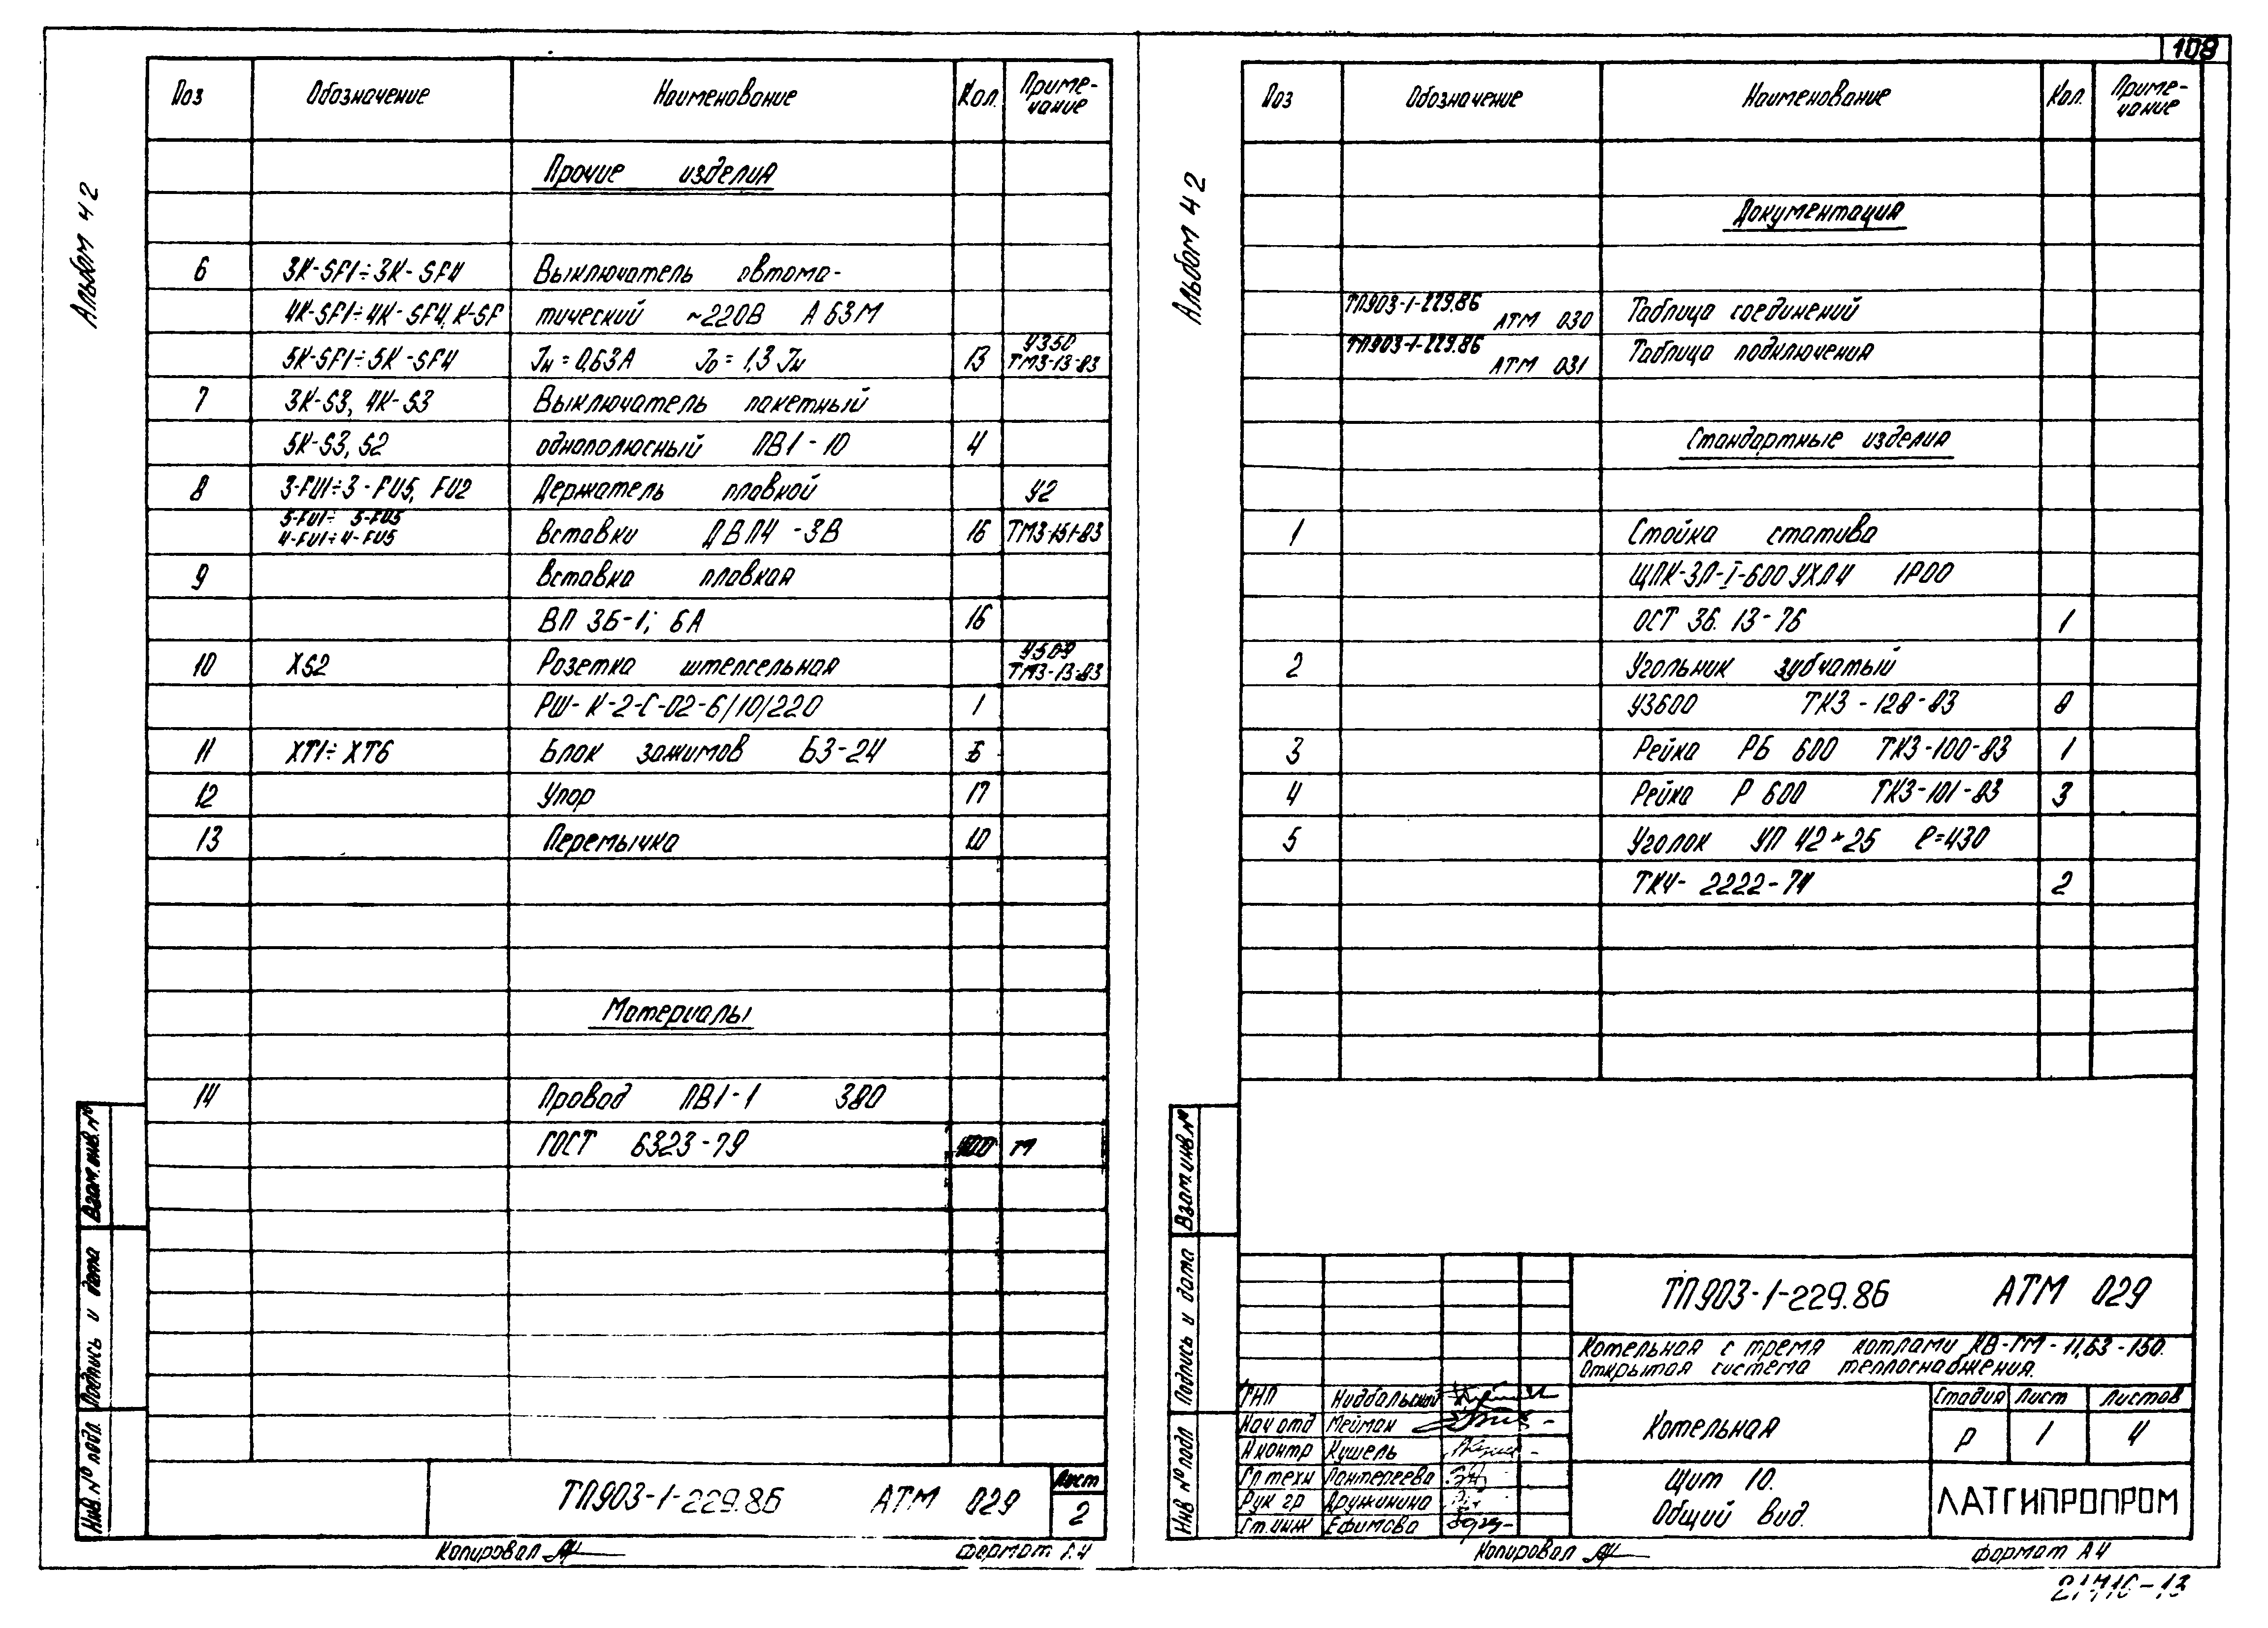 108
Альбом 42
Поз Обозначение Наименование Кол. Приме-
чание
Прочие изделия
6 3К-SF1÷3К-SF4 Выключатель автома-
4К-SF1÷4К-SF4, К-SF тический ~220В А63М
5К-SF1÷5К-SF4 Iн = 0,63А Iо = 1,3 Iн 13 У350
ТМ3-13-83
7 3К-S3, 4К-S3 Выключатель пакетный
5К-S3, S2 однополюсный ПВ1-10 4
8 3-FU1÷3-FU5, FU2 Держатель плавкой У2
5-FU1÷ 5-FU5
4-FU1÷4-FU5 Вставки ДВП4-3В 16 ТМ3-151-83
9 Вставка плавкая
ВП 3Б-1; 6А 16
10 XS2 Розетка штепсельная У509
ТМ3-13-83
РШ-К-2-С-02-6/10/220 1
11 ХТ1÷ХТ6 Блок зажимов БЗ-24 6
12 Упор 17
13 Перемычка 10
Материалы
14 Провод ПВ1-1 380
ГОСТ 6323-79 м
Взам.инв.№
Подпись и дата
Инв.№ подл.
ТП903-1-229.86 АТМ 029
Лист
2
Копировал
Формат А4
Альбом 42
Поз Обозначение Наименование Кол. Приме-
чание
Документация
ТП903-1-229.86
АТМ 030 Таблица соединений
ТП903-1-229.86
АТМ 031 Таблица подключения
Стандартные изделия
1 Стойка статива
ЩПК-ЗП-I-600 УХЛ4 IP00
ОСТ 36.13-76 1
2 Угольник зубчатый
У3600 ТК3-128-83 8
3 Рейка РБ 600 ТК3-100-83 1
4 Рейка Р 600 ТК3-101-83 3
5 Уголок УП 42×25 ℓ=430
ТК4-2222-74 2
Взам.инв.№
Подпись и дата
Инв №подл
ТП903-1-229.86 АТМ 029
Котельная с тремя котлами КВ-ГМ-11,63-150.
Открытая система теплоснабжения.
ГИП Нидбальский
Нач отд Мейман
Н контр Кушель
Гл техн Пантелеева
Рук гр Дружинина
Ст.инж Ефимова
Котельная
Стадия Лист Листов
Р 1 4
Щит 10.
Общий вид.
ЛАТГИПРОПРОМ
Копировал
Формат А4
21710-13